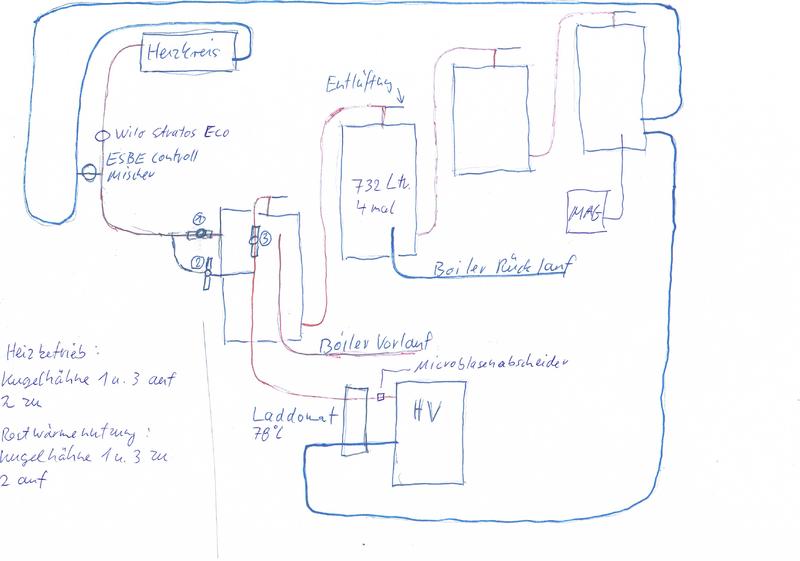 Heizkreis
Wilo Stratos Eco
ESBE Controll
Mischer
Entlüftung
732 Ltr.
4 mal
MAG
1
2
3
Boiler Rücklauf
Boiler Vorlauf
Microblasenabscheider
Laddomat
78°C
HV
Heizbetrieb:
Kugelhähne 1 u. 3 auf
2 zu
Restwärmenutzung:
Kugelhähne 1 u. 3 zu
2 auf